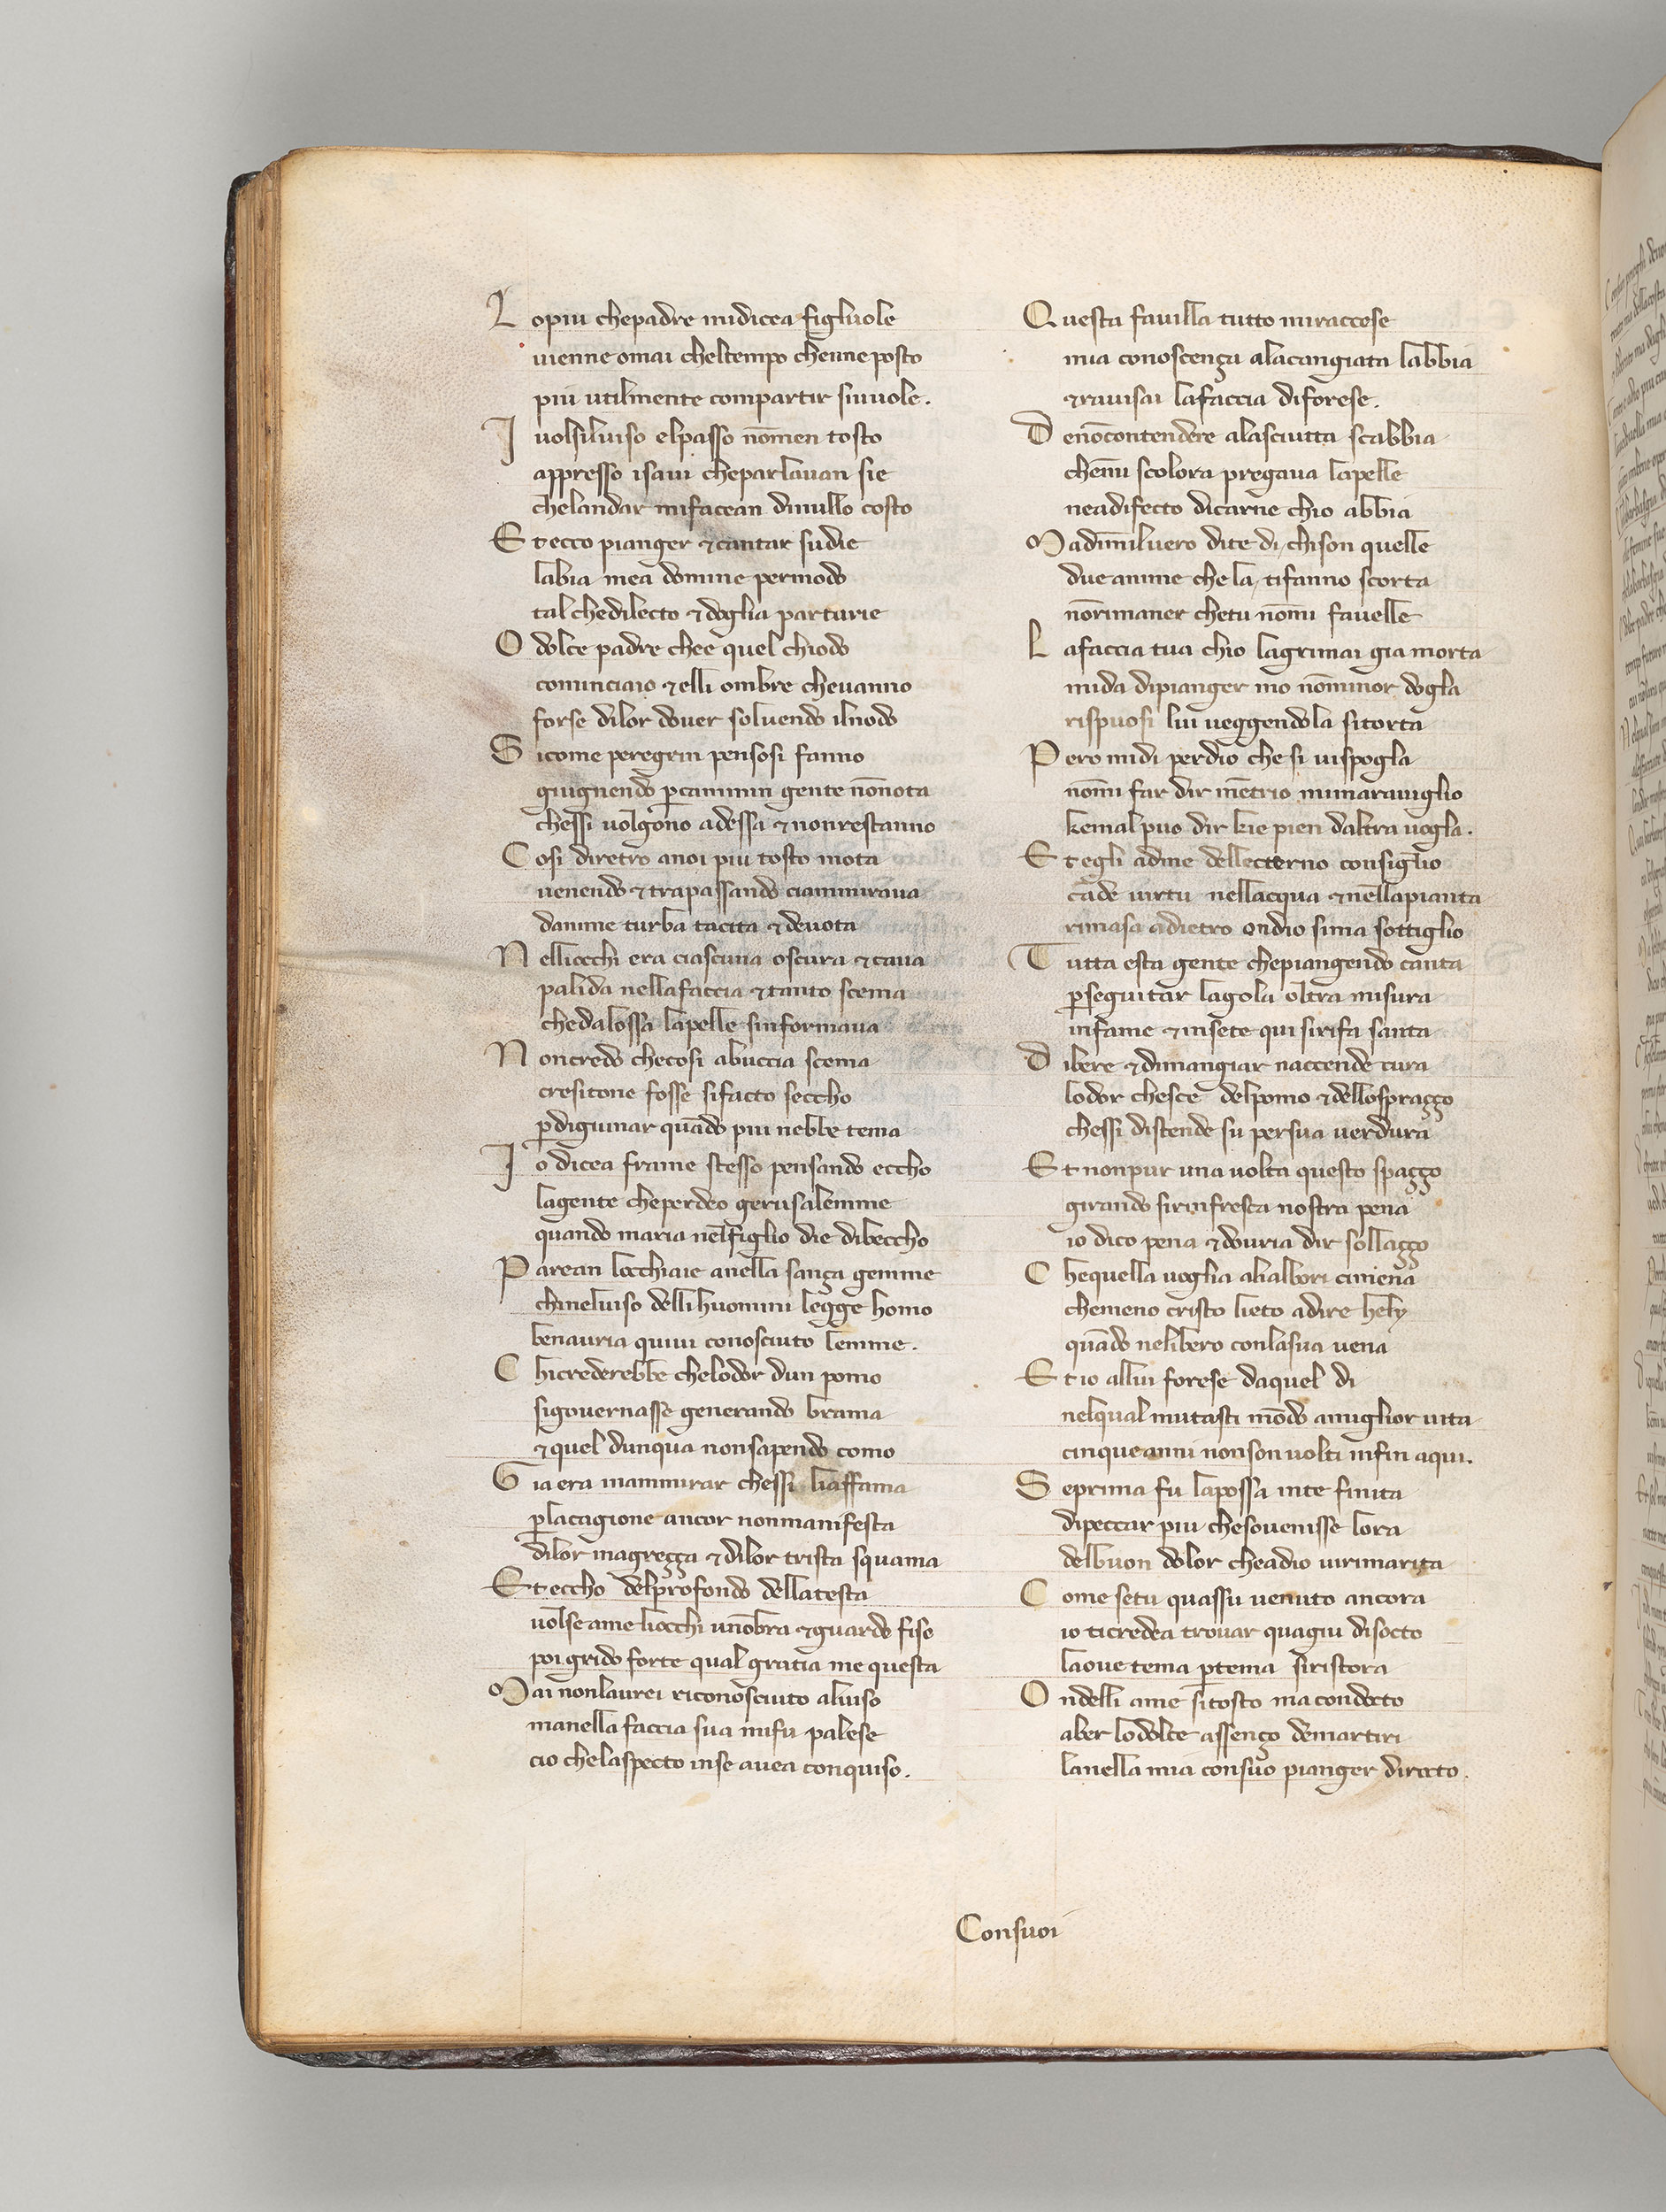 Lopiu chepadre midicea figliuole
uienne omai cheltempo chenne posto
piu utilmente compartir siuuole.
Iuolsiluiso elpasso nōmen tosto
appresso isaui cheparlauan sie
chelandar mifacean dinullo costo
Et ecco pianger ⁊ cantar sudie
labia mea domine permodo
tal chedilecto ⁊ doglia parturie
O dolce padre chee quel chiodo
cominciaio ⁊ elli ombre cheuanno
forse dilor douer soluendo ilnodo
Sicome peregrin pensosi fanno
giugnendo p̄cammin gente nōnota
chessi uolgono adessa ⁊ nonrestanno
Cosi diretro anoi piu tosto mota
uenendo ⁊ trapassando ciammiraua
danime turba tacita ⁊ deuota
Nelliocchi era ciascuna oscura ⁊ caua
palida nellafaccia ⁊ tanto scema
chedalossa lapelle sinformaua
Noncredo checosi abuccia scema
cresitone fosse sifacto seccho
p̄digiunar quādo piu nebbe tema
Io dicea frame stesso pensando eccho
lagente cheperdeo gerusalemme
quando maria nelfiglio die dibeccho
Parean locchiaie anella sança gemme
chineluiso dellihuomini legge homo
benauria quiui conosciuto lemme.
Chicrederebbe chelodor dun pomo
sigouernasse generando brama
⁊ quel dunqua nonsapendo como
Gia era inammirar chessi liaffama
p̄lacagione ancor nonmanifesta
dilor magreçça ⁊ dilor trista squama
Et eccho delprofondo dellatesta
uolse ame liocchi unōbra ⁊ guardo fiso
poi grido forte qual gratia me questa
Mai nonlaurei riconosciuto aluiso
manella faccia sua mifu palese
cio chelaspecto inse auea conquiso.
Questa fauilla tutto miraccese
mia conoscença alacangiata labbia
⁊ rauisai lafaccia diforese.
Denōcontendere alasciutta scabbia
chemi scolora pregaua lapelle
neadifecto dicarne chio abbia
Madimmiluero dite di chison quelle
due anime che la tifanno scorta
nōrimaner chetu nōmi fauelle
Lafaccia tua chio lagrimai gia morta
mida dipianger mo nōminor dogla
rispuosi lui ueggendola sitorta
Pero midi perdio che si uispogla
nōmi far dir mētrio mimarauiglio
kemal puo dir kie pien daltra uogla.
Et egli adme delletterno consiglio
cade uirtu nellacqua ⁊ nellapianta
rimasa adietro ondio sima sottiglio
Tutta esta gente chepiangendo canta
p̄seguitar lagola oltra misura
infame ⁊ insete qui sirifa santa
Dibere ⁊ dimangiar naccende cura
lodor chesce delpomo ⁊ dellospraçço
chessi distende su persua uerdura
Et nonpur una uolta questo spaçço
girando sirinfresca nostra pena
io dico pena ⁊ douria dir sollaçço
Chequella uoglia alialbori cimena
chemeno cristo lieto adire hely
quādo nelibero conlasua uena
Et io allui forese daquel di
nelqual mutasti mōdo amiglior uita
cinque anni nonson uolti infin aqui.
Seprima fu lapossa inte finita
dipeccar piu chesouenisse lora
delbuon dolor cheadio uirimarita
Come setu quassu uenuto ancora
io ticredea trouar quagiu disocto
laoue tema p̄tema siristora
Ondelli ame sitosto macondocto
aber lodolce assenço demartiri
lanella mia consuo pianger directo.
Consuoi